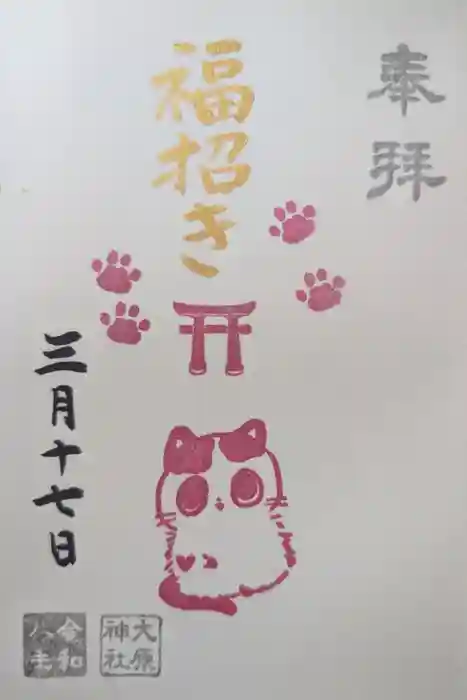 奉拝
福招き
三月十七日
大原神社
令和八年